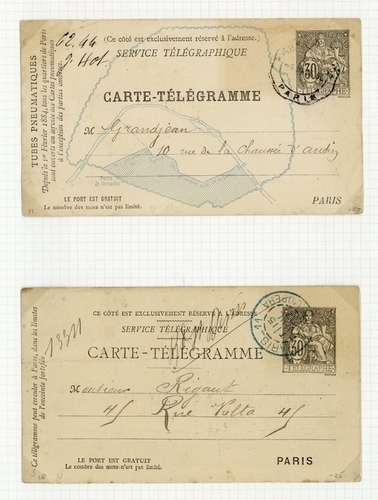 (Ce côté est exclusivement réservé à l'adresse.)
SERVICE TÉLÉGRAPHIQUE
CARTE-TÉLÉGRAMME
TUBES PNEUMATIQUES
Depuis le 1er Février 1884, tous les quartiers de Paris
sont ouverts au service des Cartes pneumatiques
à l'exception des parties teintées.
02.44
30
PARIS
M Grandjean
10 rue de la Chaussée d'antin
LE PORT EST GRATUIT
Le nombre des mots n'est pas limité.
PARIS
CE CÔTÉ EST EXCLUSIVEMENT RÉSERVÉ A L'ADRESSE
SERVICE TÉLÉGRAPHIQUE
CARTE-TÉLÉGRAMME
Ce télégramme peut circuler à Paris, dans les limites
de l'enceinte fortifiée.
13311
30
TELEGRAPHE
Monsieur Rigaut
45 Rue Volta 45
LE PORT EST GRATUIT
Le nombre des mots n'est pas limité.
PARIS